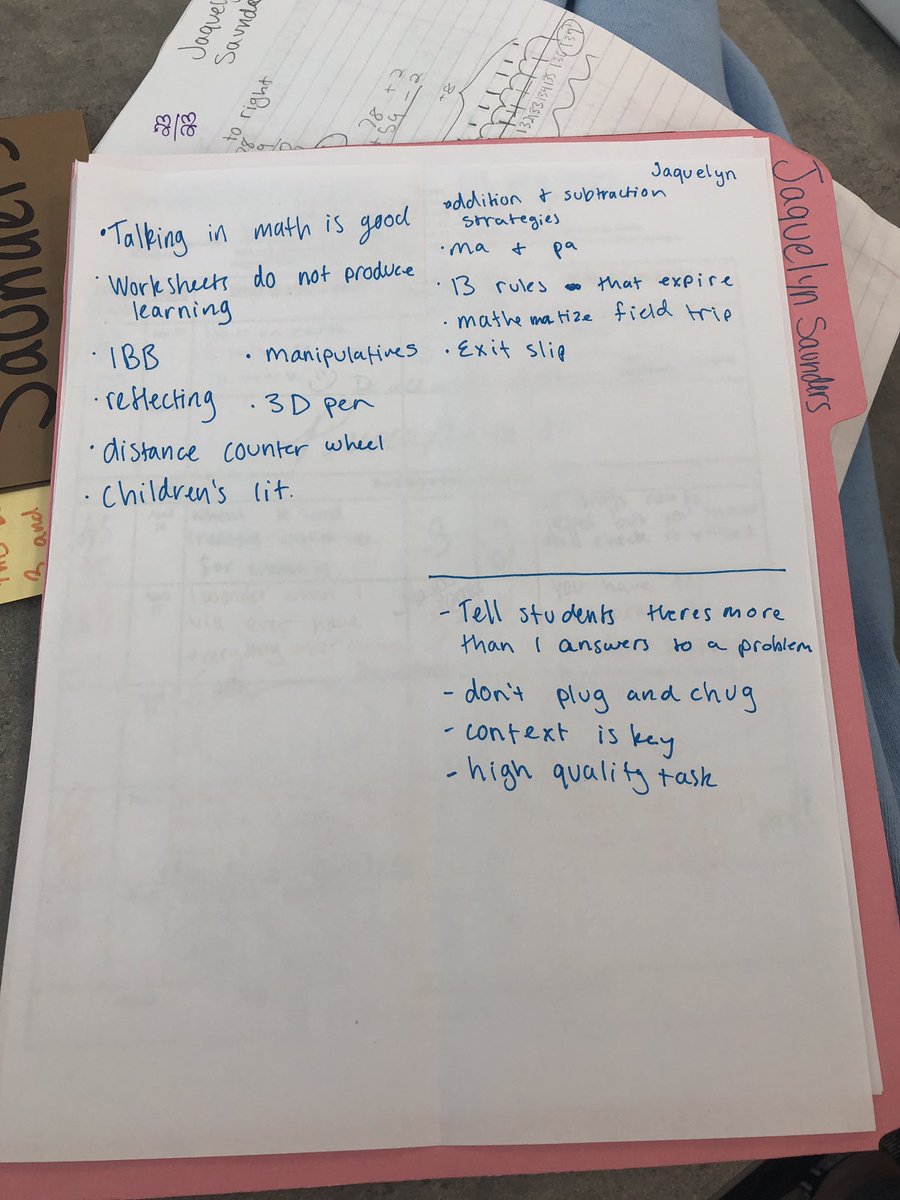 Jaquelyn
Saunde
23/23
to right
78 +2
+59 -2
+8
132 133 134 135 136 137
Saunders
3 and
Jaquelyn Saunders
Jaquelyn
• Talking in math is good
• Worksheets do not produce
learning
• IBB • manipulatives
• reflecting • 3D pen
• distance counter wheel
• Children's lit.
• addition + subtraction
strategies
• ma + pa
• 13 rules that expire
• mathematize field trip
• Exit slip
- Tell students theres more
than 1 answers to a problem
- don't plug and chug
- context is key
- high quality task